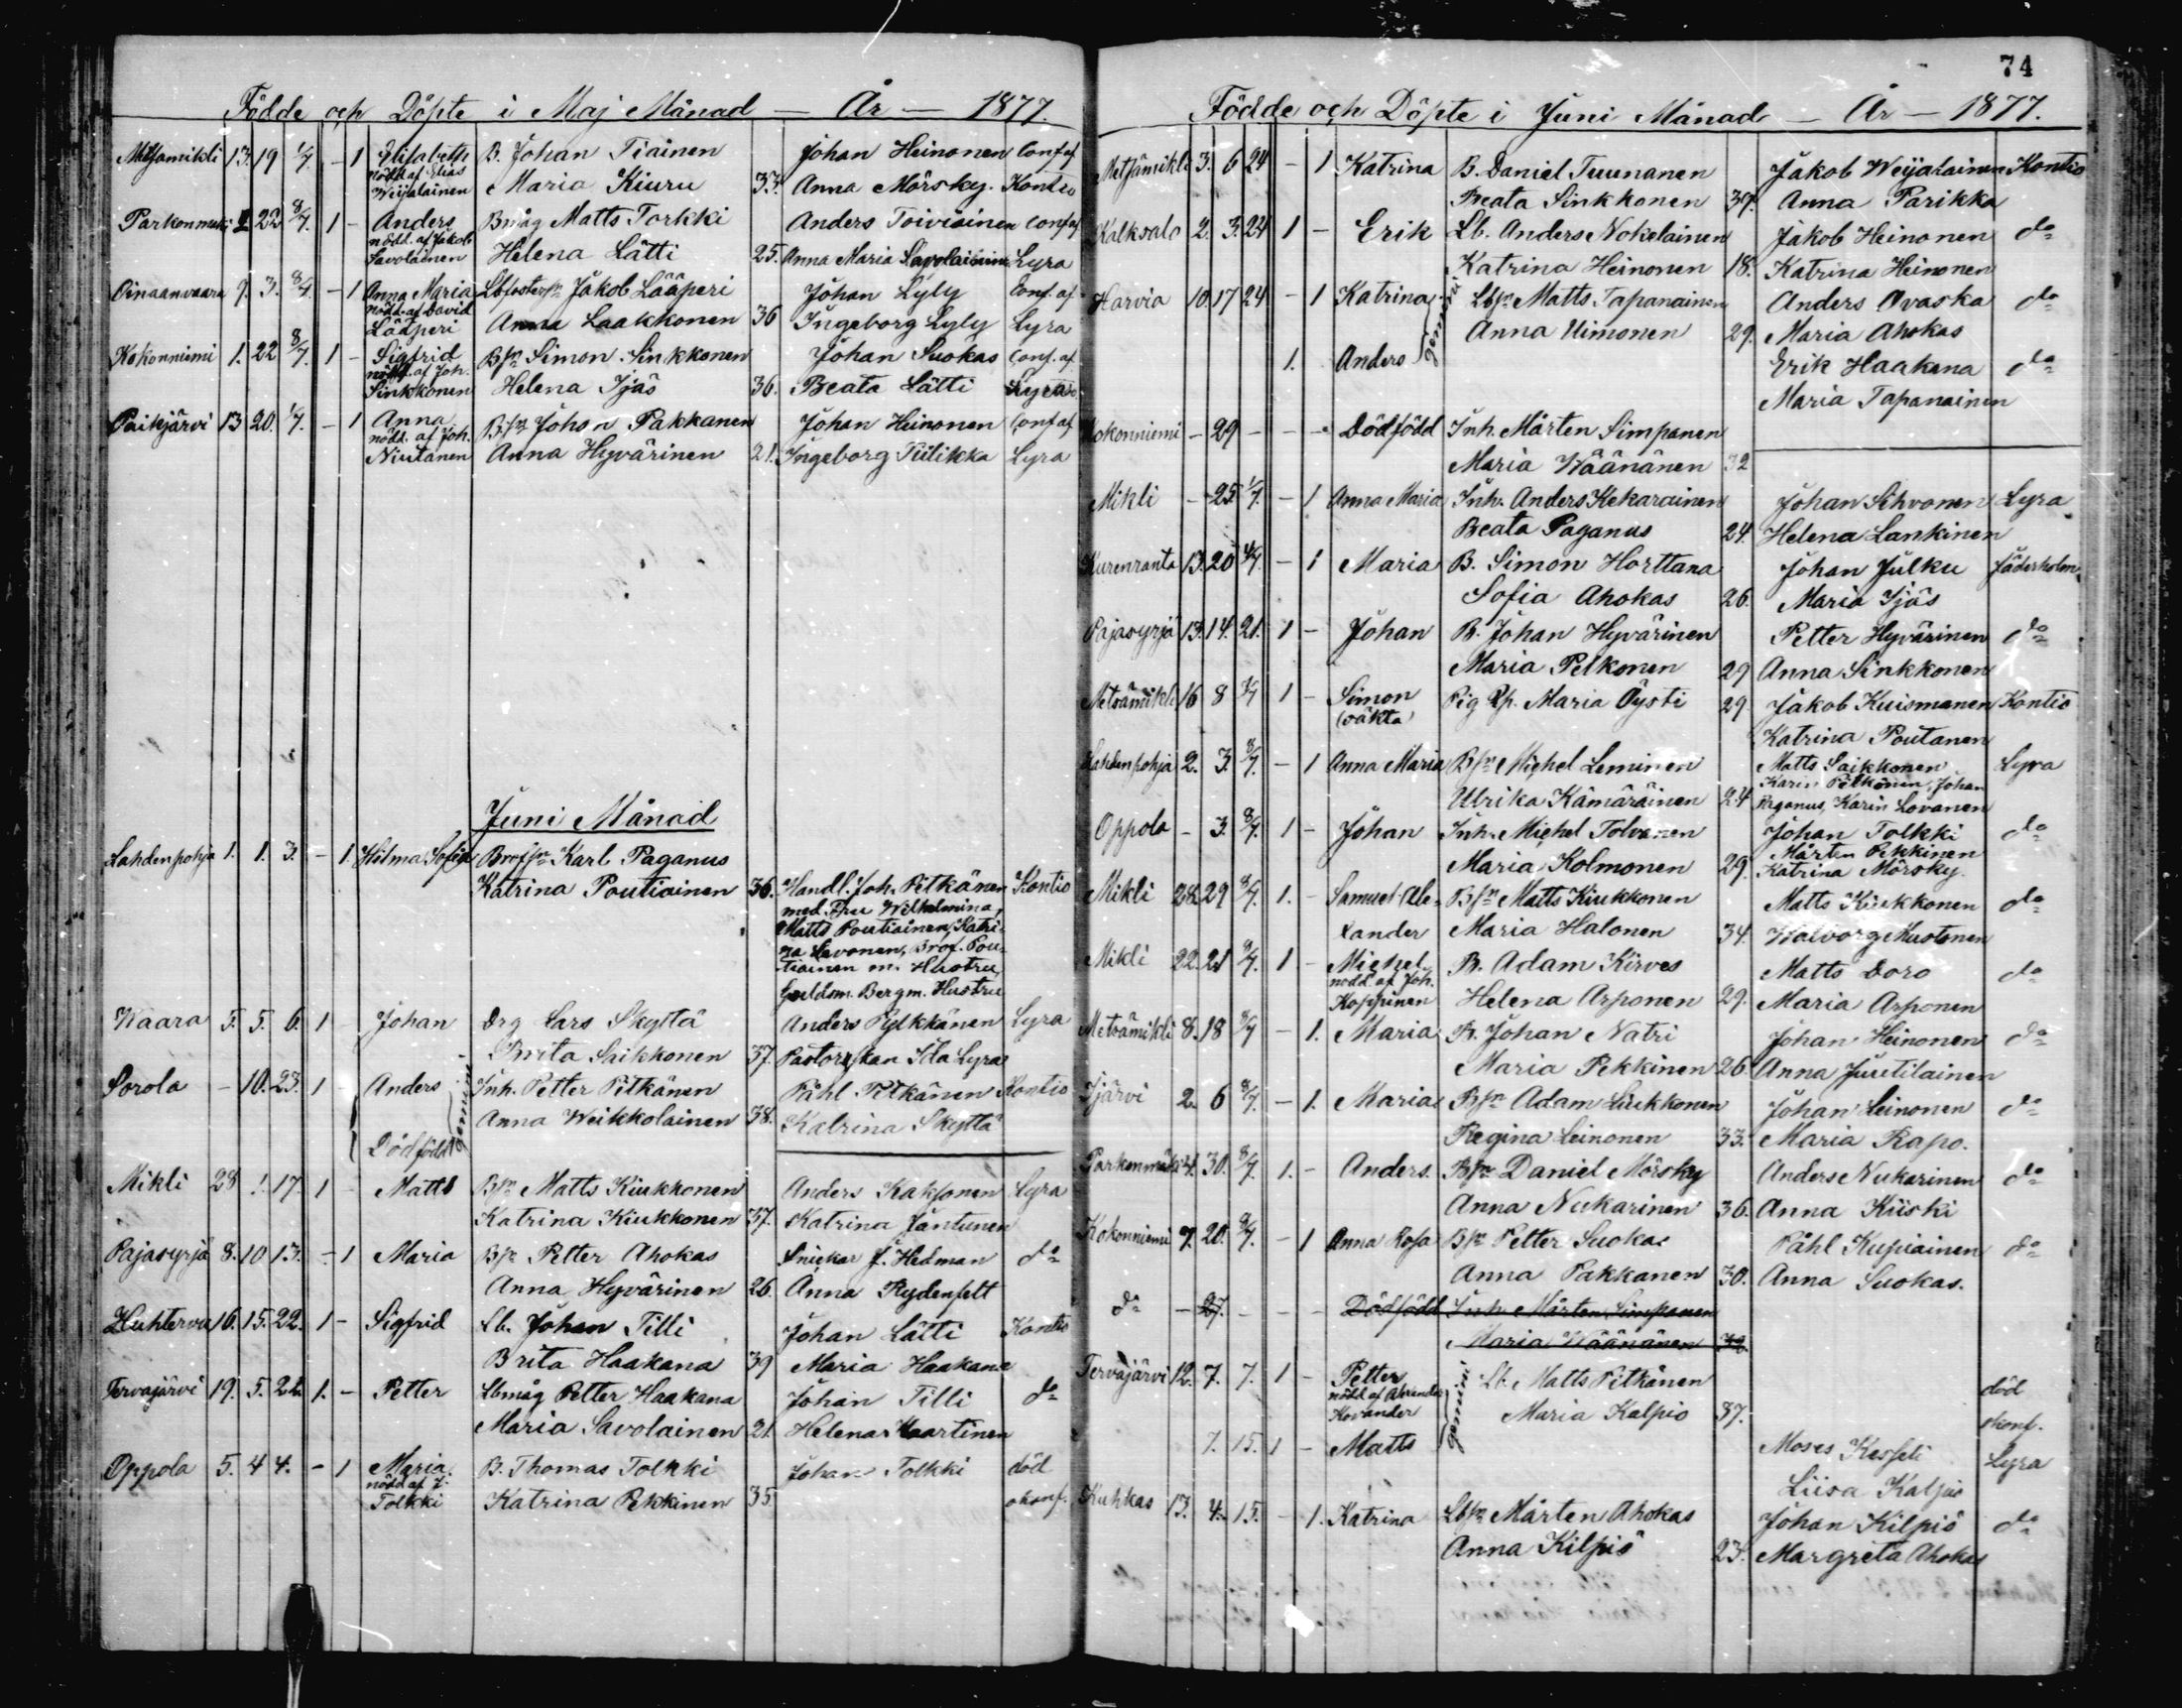 Födde och Döpte i Maj Månad — År — 1877.
Metsämikli 13. 19 1/7. - 1 Elisabeth B. Johan Tiainen Johan Heinonen Conf. af
nödd. af Elias
Weijalainen Maria Kiuru 33. Anna Mörsky. Kontio
Parkonmäki 2. 22 8/7. 1 - Anders Bmåg Matts Torkki Anders Toiviainen conf. af
nödd. af Jakob
Savolainen Helena Lätti 25. Anna Maria Savolainen Lyra
Oinaanvaara 9. 3. 8/7. - 1 Anna Maria Jakob Lääperi Johan Lyly Conf. af
nödd. af David
Lääperi Anna Laakkonen 36 Ingeborg Lyly Lyra
Kokonniemi 1. 22 8/7. 1 - Sigfrid Bsn Simon Sinkkonen Johan Suokas conf. af
nödd. af Joh.
Sinkkonen Helena Ijäs 36. Beata Lätti Lyra
Paikjärvi 13 20. 1/7. - 1 Anna Bsn Johan Pakkanen Johan Heinonen Conf. af
nödd. af Joh.
Niutanen Anna Hyvärinen 21. Ingeborg Tiilikka Lyra
Juni Månad
Lahdenpohja 1. 1. 3. - 1. Hilma Sofia Karl Paganus
Katrina Poutiainen 36. Handl. Joh. Pitkänen Kontio
med Fru Wilhelmina,
Matts Poutiainen, Katri-
na Savonen, Pou-
tiainen m. Hustru
Guldsm. Bergm. Hustru
Waara 5. 5. 6. 1 - Johan Drg Lars Skyttä Anders Pylkkänen Lyra
Brita Saikkonen 37. Pastorskan Ida Lyra
Sorola - 10. 23. 1 - Anders Inh. Petter Pitkänen Påhl Pitkänen Kontio
gemini
Anna Weikkolainen 38. Katrina Skyttä
Dödfödd
Mikli 28 1. 17. 1 - Matts Bsn Matts Kiukkonen Anders Kaksonen Lyra
Katrina Kiukkonen 37. Katrina Jantunen
Pajasyrjä 8. 10 13. - 1 Maria Bsn Petter Ahokas Snickar J. Hedman do
Anna Hyvärinen 26. Anna Rydenfelt
Huhtervu 16. 15. 22. 1 - Sigfrid Lb. Johan Tilli Johan Lätti Kontio
Brita Haakana 39 Maria Haakana
Tervajärvi 19. 5. 24. 1. - Petter Lbmåg Petter Haakana Johan Tilli do
Maria Savolainen 21. Helena Maartinen
Oppola 5. 4 4. - 1 Maria B. Thomas Tolkki Johan Tolkki död
nödd af J.
Tolkki Katrina Pekkinen 35. okonf.
74
Födde och Döpte i Juni Månad — År — 1877.
Metsämikli 3. 6 24 - 1 Katrina B. Daniel Tuunanen Jakob Weijalainen Kontio
Beata Sinkkonen 37. Anna Parikka
Kalksalo 2. 3. 24 1 - Erik Lb. Anders Nokelainen Jakob Heinonen do
Katrina Heinonen 18. Katrina Heinonen
Harvia 10. 17 24 - 1 Katrina Lbsn Matts Tapanainen Anders Avaska do
gemini
Anna Uimonen 29. Maria Ahokas
1. Anders Erik Haakana do
Maria Tapanainen
Kokonniemi - 29 - - - Dödfödd Inh. Mårten Simpanen
Maria Wäänänen 32
Mikli - 25 1/7. - 1 Anna Maria Inh. Anders Kekarainen Johan Sihvonen Lyra
Beata Paganus 24. Helena Lankinen
Kurenranta 13. 20 4/7. - 1 Maria B. Simon Horttana Johan Julku Jäderholm
Sofia Ahokas 26. Maria Ijäs
Pajasyrjä 13. 14. 21. 1 - Johan B. Johan Hyvärinen Petter Hyvärinen do
Maria Pelkonen 29 Anna Sinkkonen
Metsämikli 16 8 1 - Simon Pig Maria Öysti 29 Jakob Kuismanen Kontio
(oäkta)
Katrina Poutanen
Lahdenpohja 2. 3. 8/7. - 1 Anna Maria Bsn Michel Leminen Matts Saikkonen Lyra
Karin Pelkonen, Johan
Ulrika Kämäräinen 24 Paganus, Karin Lovanen
Oppola - 3. 8/7. 1 - Johan Inh. Michel Tolvanen Johan Tolkki do
Mårten Pekkinen
Maria Kolmonen 29. Katrina Mörsky.
Mikli 28. 29 8/7. 1. - Samuel Ale- Bsn Matts Kiukkonen Matts Kiukkonen do
xander Maria Halonen 34. Walborg Mustonen
Mikli 22. 21 8/7. 1 - Michel B. Adam Kirves Matts Doro do
nödd. af Joh.
Koppinen Helena Arponen 29. Maria Arponen
Metsämikli 8. 18 8/7 - 1. Maria B. Johan Natri Johan Heinonen do
Maria Pekkinen 26. Anna Juutilainen
Ijärvi 2. 6 8/7. - 1. Maria Bsn Adam Liukkonen Johan Leinonen do
Regina Leinonen 33. Maria Rapo.
Parkonmäki 4. 30. 8/7. 1. - Anders. Bsn Daniel Mörsky Anders Nukarinen do
Anna Nukarinen 36. Anna Kiiski
Kokonniemi 9. 20. 8/7. - 1 Anna Rosa Bsn Petter Suokas Påhl Kupiainen do
Anna Pakkanen 30. Anna Suokas.
do - 27. - - - Dödfödd Inh. Mårten Simpanen
Maria Wäänänen 32
Tervajärvi 12. 7. 7. 1 - Petter Lb. Matts Pitkänen
gemini
nödd af
Kovander Maria Kalpio 37. död
okonf.
7. 15. 1 - Matts Moses Kesseli Lyra
Liisa Kalpio
Kuhkas 13. 4. 15. - 1. Katrina Lbsn Mårten Ahokas Johan Kilpiö do
Anna Kilpiö 23. Margreta Ahokas